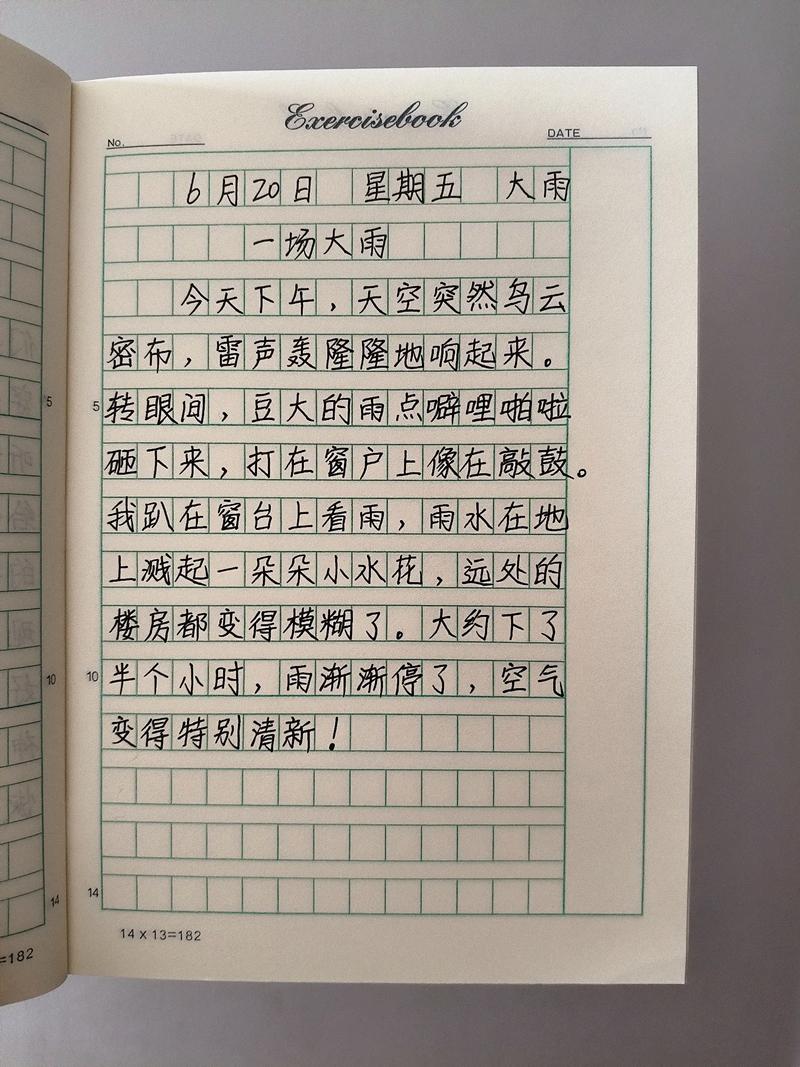 Exercisebook
No. DATE
6月20日 星期五 大雨
一场大雨
今天下午，天空突然鸟云
密布，雷声轰隆隆地响起来。
5 5 转眼间，豆大的雨点噼哩啪啦
砸下来，打在窗户上像在敲鼓。
我趴在窗台上看雨，雨水在地
上溅起一朵朵小水花，远处的
楼房都变得模糊了。大约下了
10 10 半个小时，雨渐渐停了，空气
变得特别清新！
14 14
=182 14 x 13=182